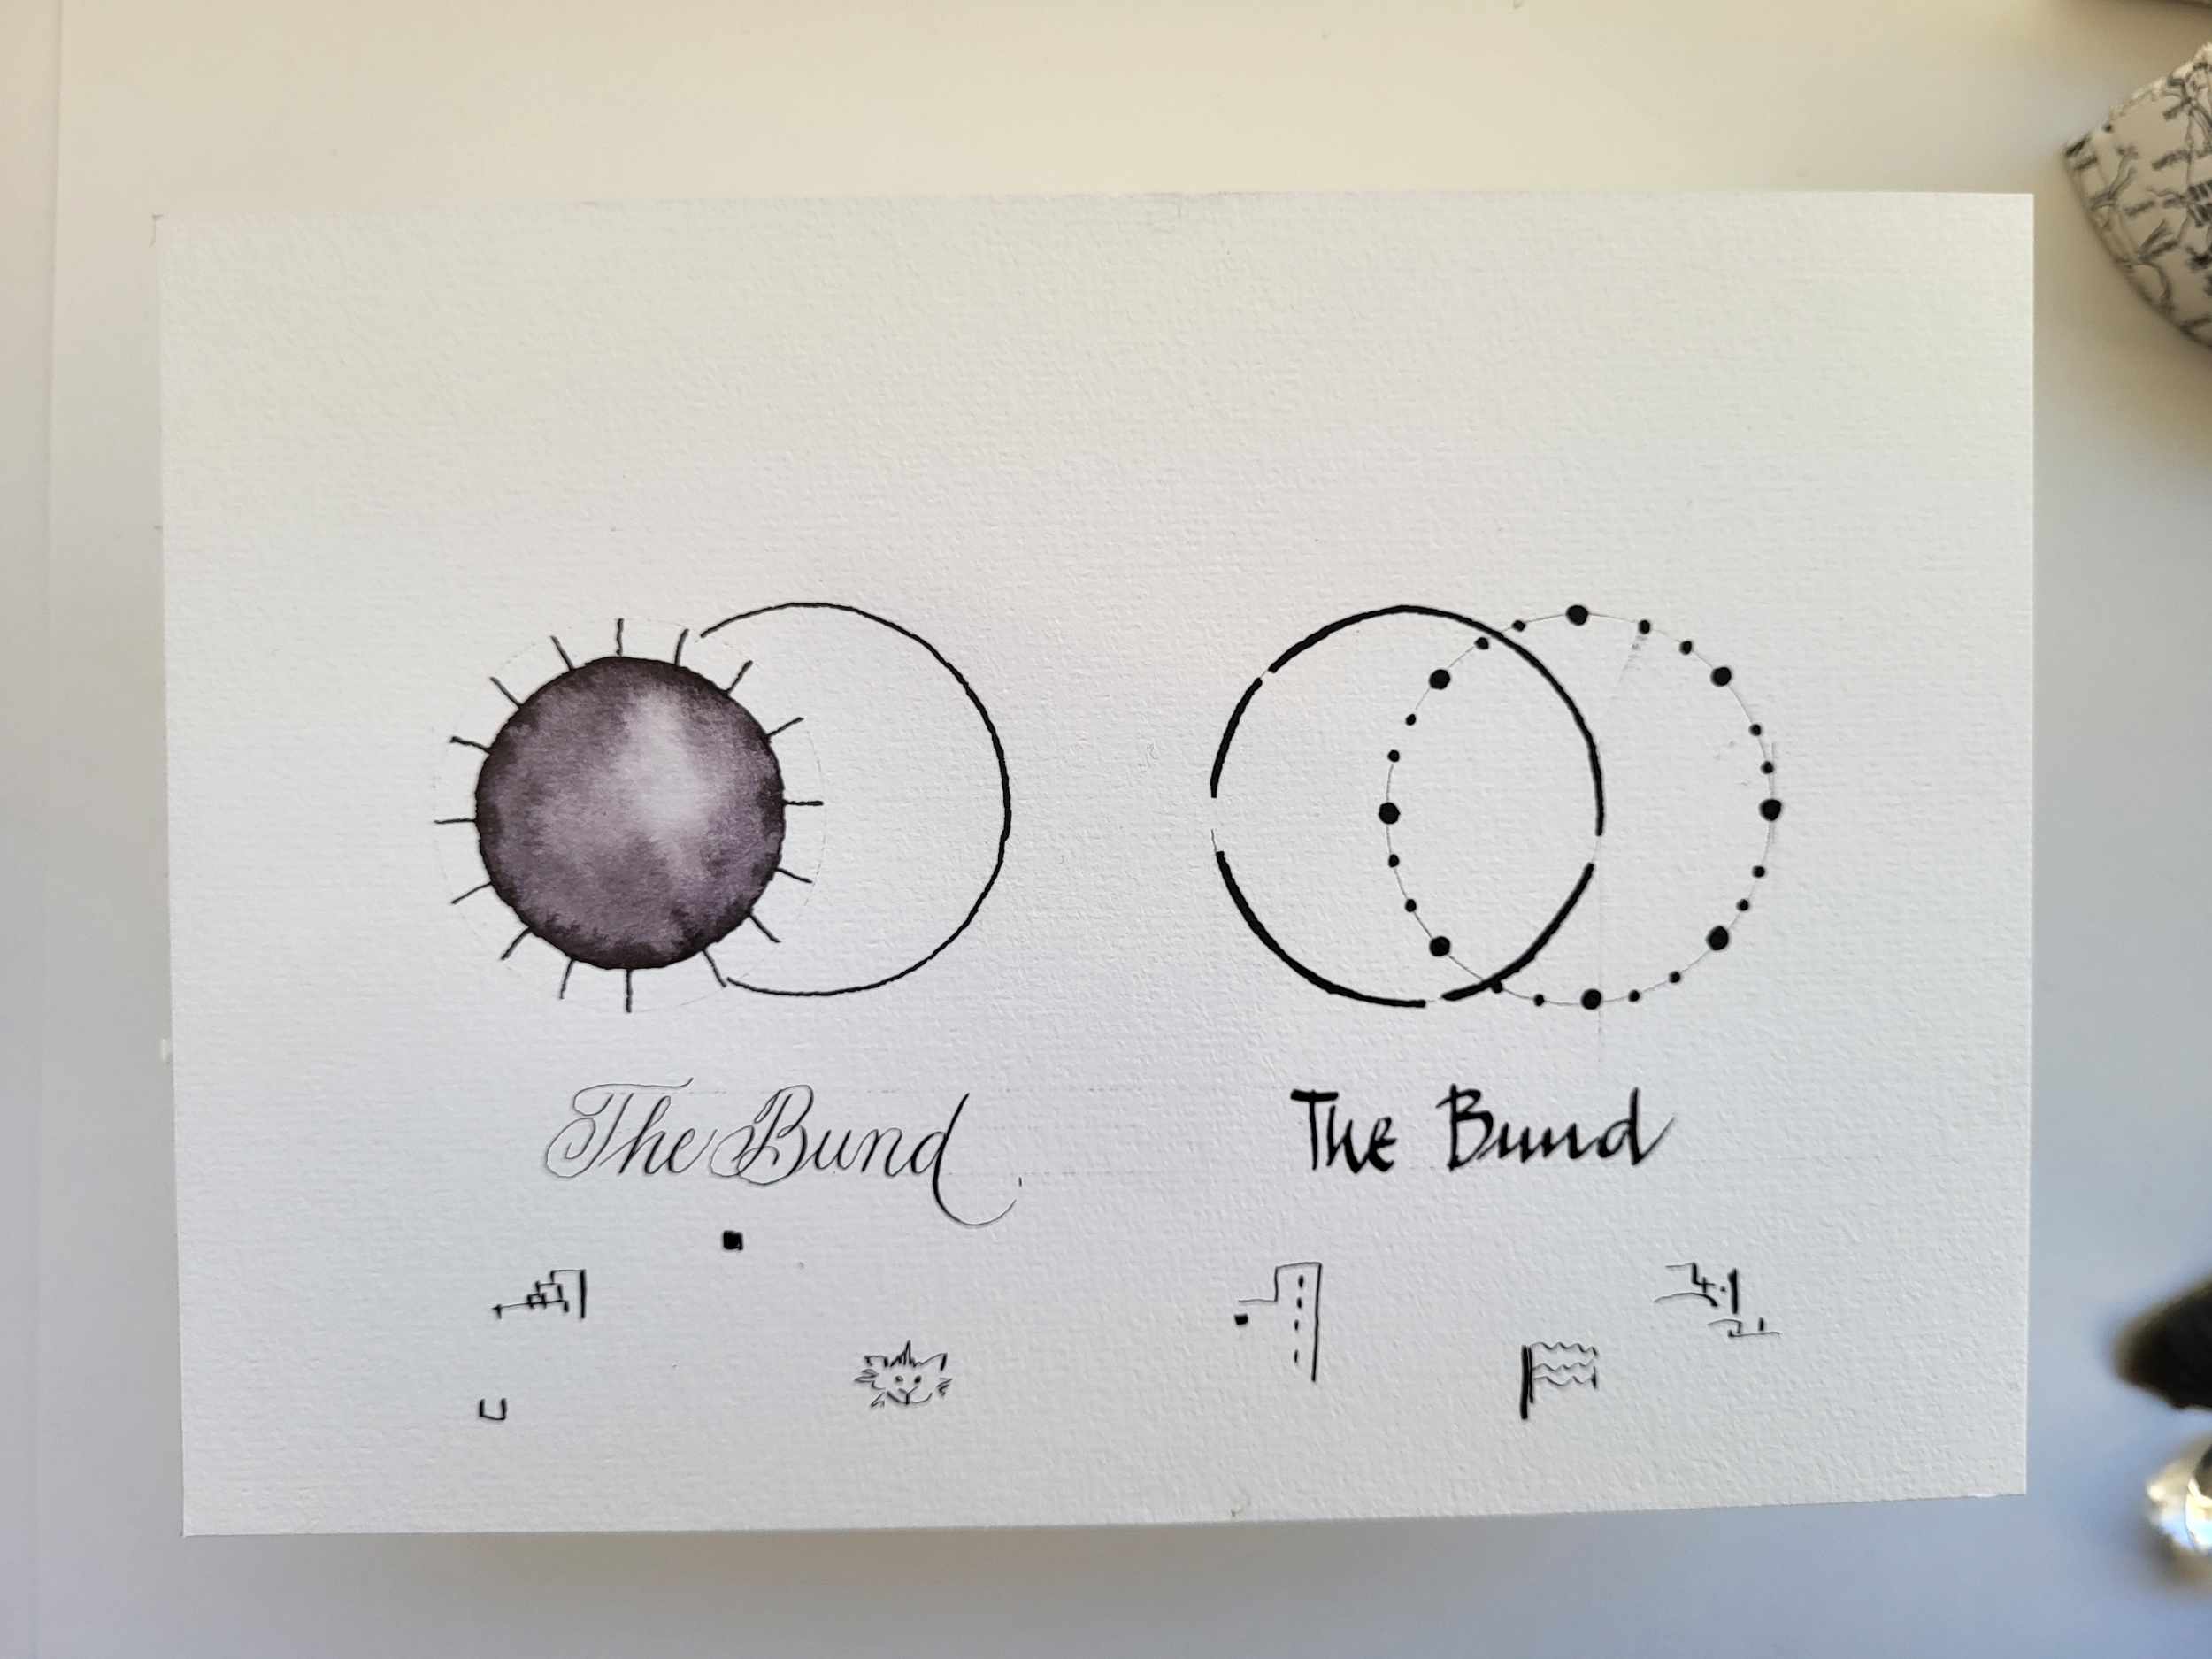 The Bund
The Bund